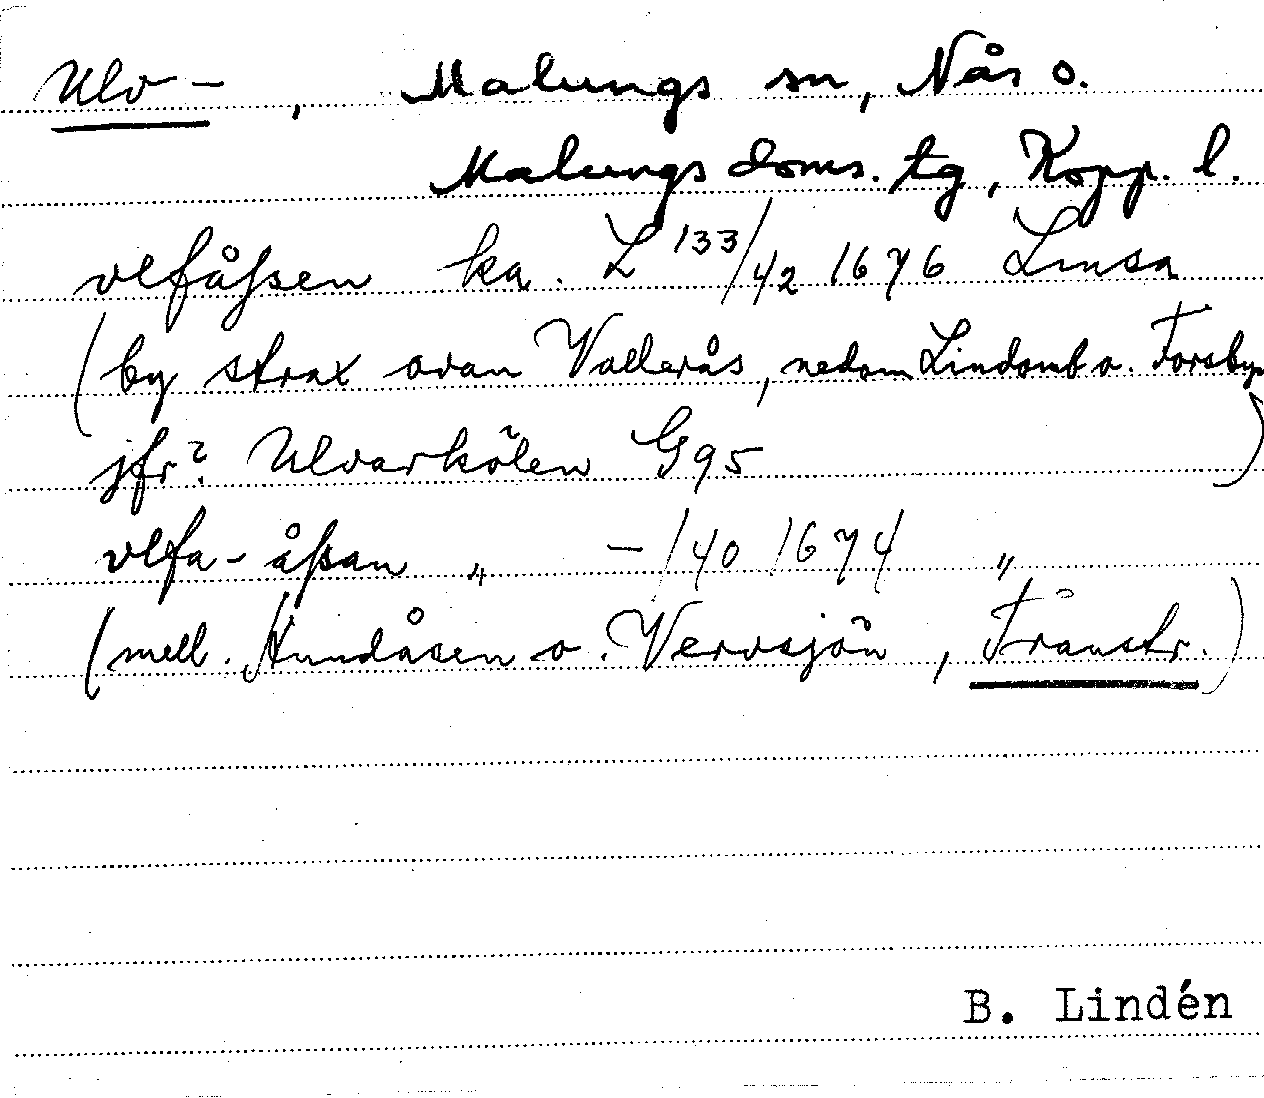 Ulv- , Malungs sn, Nås o.
Malungs doms. tg, Kopp. l.
vlfåssen ka. L 133/42 1676 Limsa
(by strax ovan Vallerås, nedom Lindomb o. Forsby
jfr? Ulvarkölen G95 )
vlfa-åssan „ -/40 1674 „
(mell. Hundåsen o. Vervsjön, Transtr.)
B. Lindén